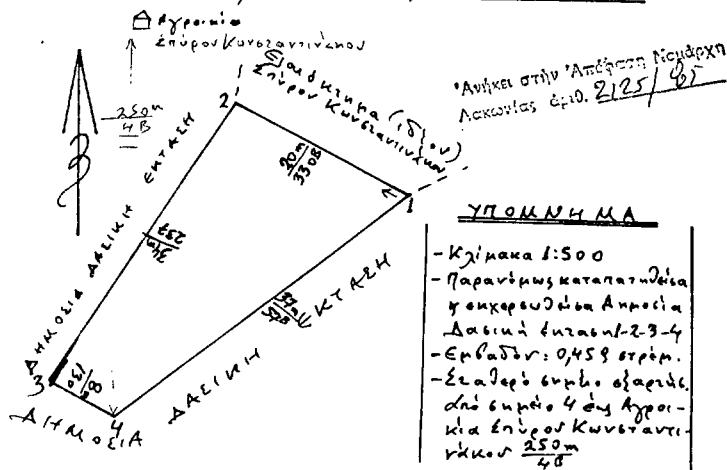 Αγροικία
Σπύρου Κωνσταντινάκου
250m
4B
Ελαιόκτημα (ιδ/ον)
Σπύρου Κωνσταντινάκου
Ἀνήκει στήν Ἀπόφαση Νομάρχη
Λακωνίας ἀριθ. 2125/85
2
20m
330B
1
ΔΗΜΟΣΙΑ ΔΑΣΙΚΗ ΕΚΤΑΣΗ
34m
237
37m
57B
3
8m
130
4
ΔΗΜΟΣΙΑ ΔΑΣΙΚΗ ΕΚΤΑΣΗ
ΥΠΟΜΝΗΜΑ
- Κλίμακα 1:500
- Παρανόμως καταπατηθείσα
κ εκχερσωθείσα Δημοσία
Δασική έκταση 1-2-3-4
- Εμβαδόν: 0,459 στρέμ.
- Σταθερό σημείο εξαρτήσ.
από σημείο 4 έως Αγροι-
κία Σπύρου Κωνσταντι-
νάκου 250m
4B